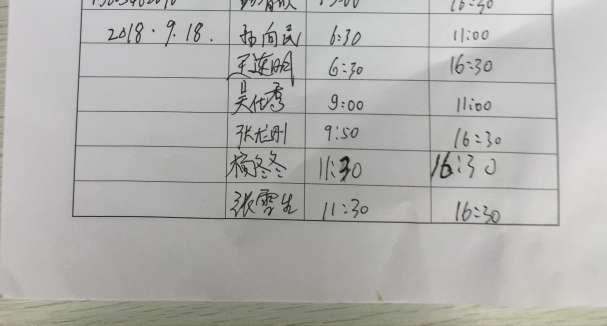 16:30
2018.9.18. 孙向民 6:30 11:00
王连明 6:30 16:30
吴仕秀 9:00 11:00
张龙刚 9:50 16:30
杨冬冬 11:30 16:30
张雪生 11:30 16:30